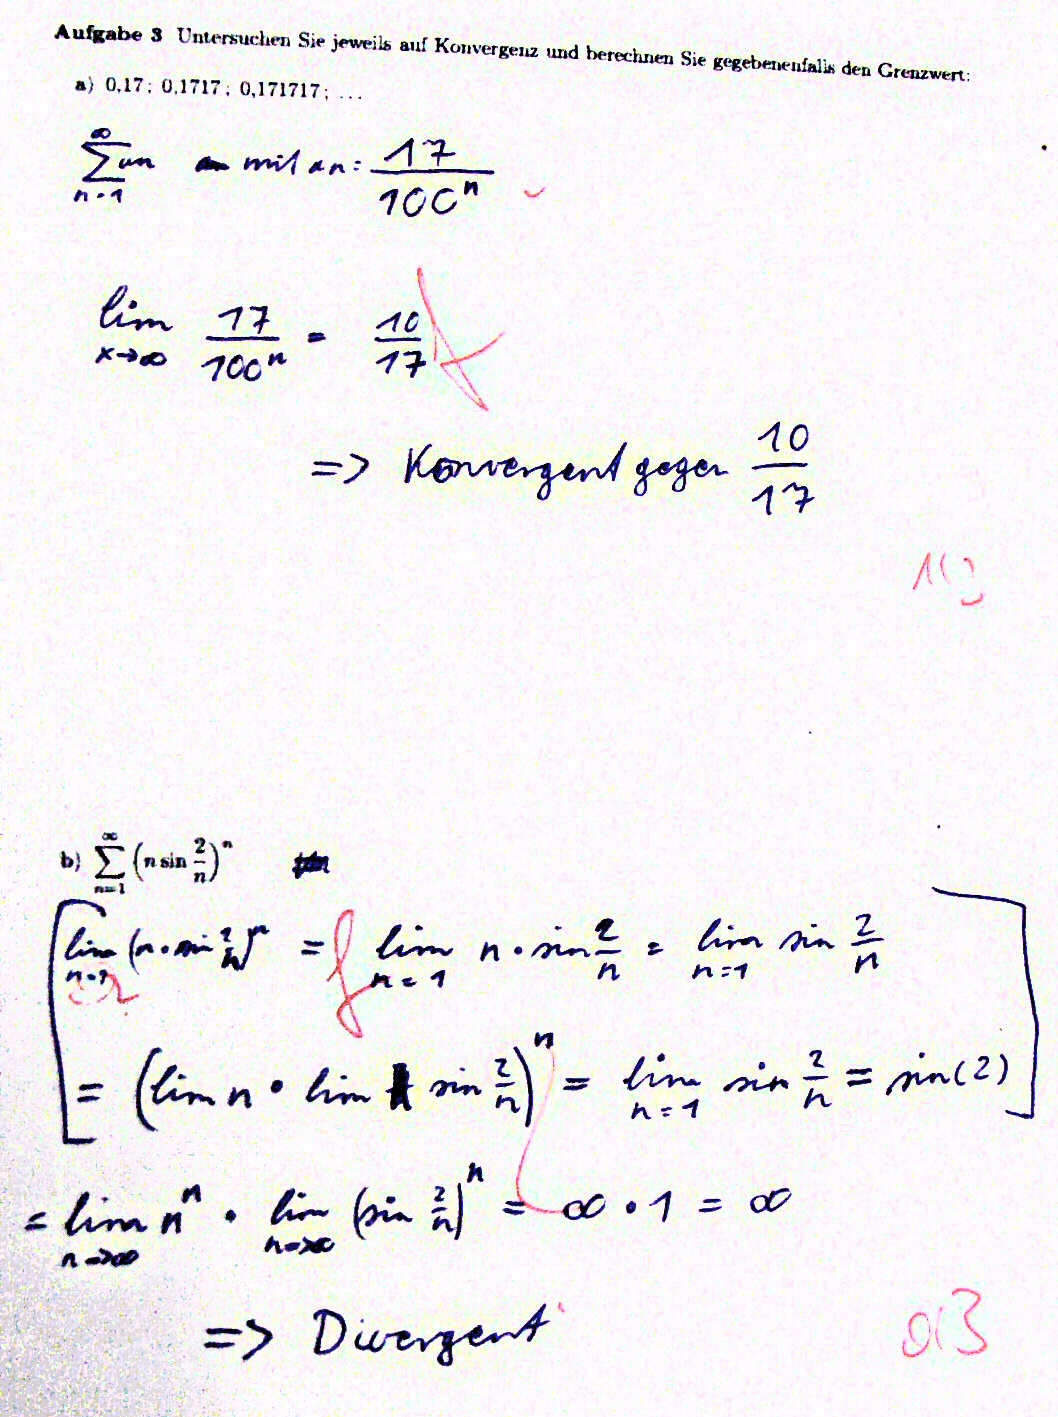 Aufgabe 3 Untersuchen Sie jeweils auf Konvergenz und berechnen Sie gegebenenfalls den Grenzwert:
a) 0,17; 0,1717; 0,171717; ...
∑_{n=1}^{∞} an mit an = 17/100^n
lim_{x→∞} 17/100^n = 10/17
=> Konvergent gegen 10/17
b) ∑_{n=1}^{∞} (n sin 2/n)^n
lim (n · sin 2/n)^n = lim_{n=1} n · sin 2/n = lim_{n=1} sin 2/n
= (lim n · lim sin 2/n)^n = lim_{n=1} sin 2/n = sin(2)
= lim_{n→∞} n^n · lim_{n→∞} (sin 2/n)^n = ∞ · 1 = ∞
=> Divergent